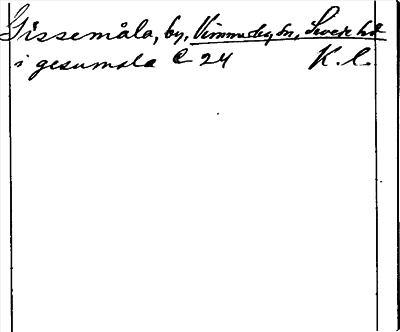 Gissemåla, by, Vimmerby sn, Sevede hd
i gesumala C 24 K. l.